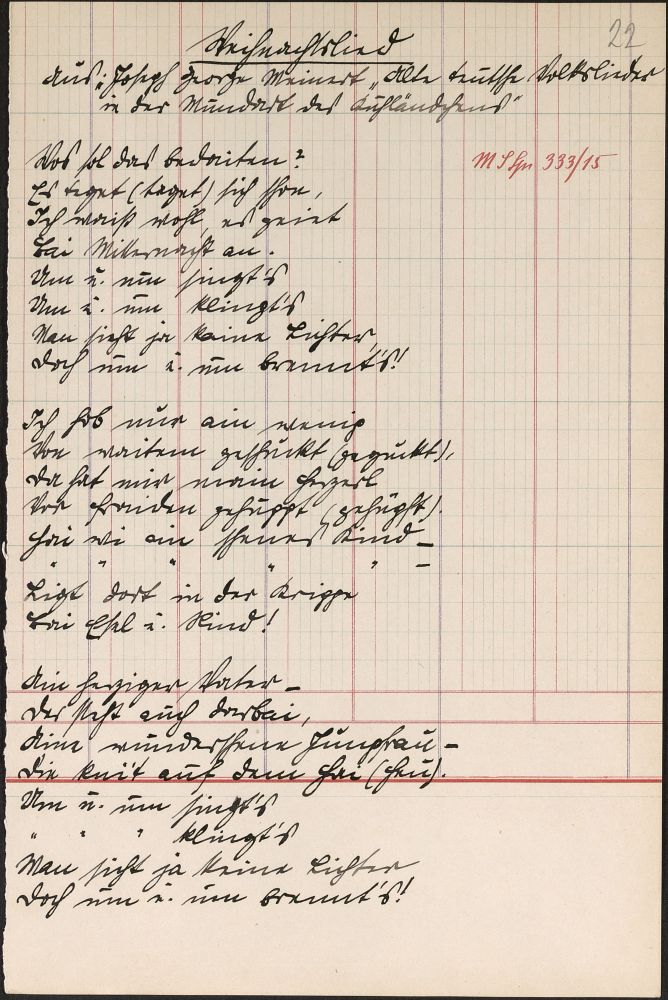 22
Weihnachtslied
Aus: Joseph George Meinert „Alte teutsche Volkslieder
in der Mundart des Kuhländchens"
MS Spr 333/15
Wos sol das bedaiten?
Es teget (taget) sich schon,
Ich waiß wohl, es geiet
Bai Mitternacht an.
Um u. um singt's
Um u. um klingt's
Man sieht ja kaine Lichter,
Doch um u. um brennt's!
Ich hob nur ain wenig
Von waitem geschuckt (geguckt),
Da hat mir main Herzerl
Vor Fraiden gehuppt (gehüpft).
Hai wi ain schenes Kind –
" " " " " –
Ligt dort in der Krippe
Bai Esel u. Rind!
Ain herziger Vater –
Der steht auch derbai,
Aine wunderschene Jungfrau –
Die knit auf dem Hai (Heu).
Um u. um singt's
" " " klingt's
Man sieht ja keine Lichter
Doch um u. um brennt's!